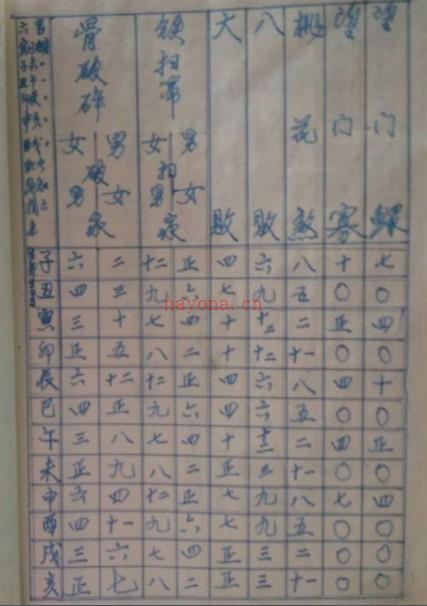 骨破碎 铁扫帚 大败 八败 桃花煞 望门寡 望门鳏
女破男家 男破女家 女扫男家 男扫女家
子 六 二 十二 正 四 六 八 十 七
丑 四 三 九 六 七 九 五 〇 〇
寅 三 十 七 四 十 十二 二 正 四
卯 正 五 八 二 十 十二 十一 〇 〇
辰 六 十二 十二 正 四 六 八 四 十
巳 四 正 九 六 四 六 五 〇 〇
午 三 八 七 四 十 十二 二 四 正
未 正 九 八 二 正 三 十一 〇 〇
申 六 四 十二 正 七 九 八 七 四
酉 四 十一 九 六 七 九 五 〇 〇
戌 三 六 七 四 正 三 二 〇 〇
亥 正 七 八 二 正 三 十一 〇 〇
nayona.cn